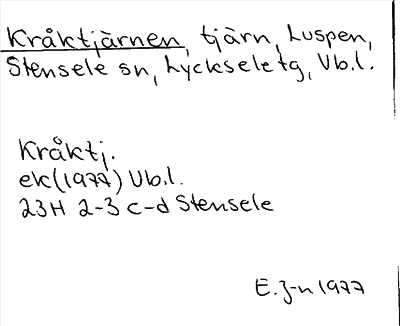 Kråktjärnen, tjärn, Luspen,
Stensele sn, Lycksele tg, Vb.l.
Kråktj.
ek(1977) Vb.l.
23H 2-3 c-d Stensele
E.J-n 1977